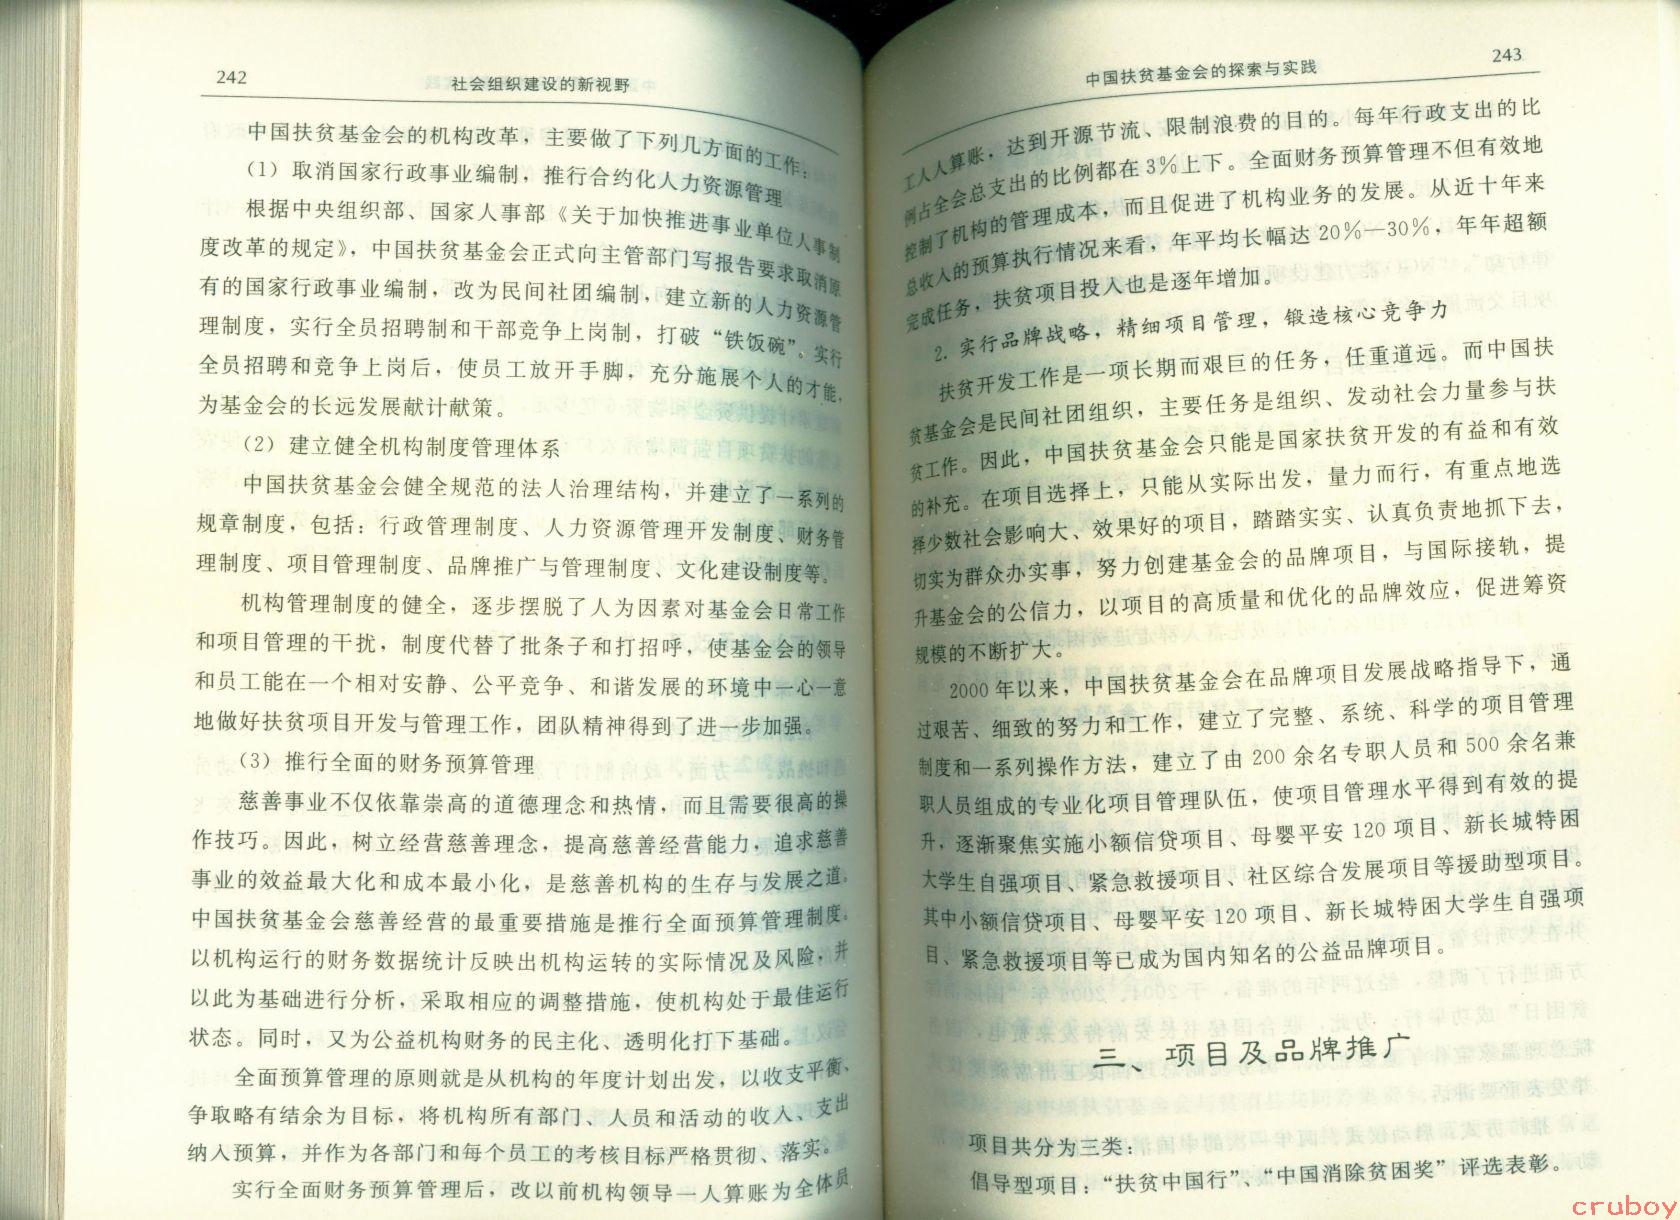 242
社会组织建设的新视野
中国扶贫基金会的机构改革，主要做了下列几方面的工作：
（1）取消国家行政事业编制，推行合约化人力资源管理
根据中央组织部、国家人事部《关于加快推进事业单位人事制
度改革的规定》，中国扶贫基金会正式向主管部门写报告要求取消原
有的国家行政事业编制，改为民间社团编制，建立新的人力资源管
理制度，实行全员招聘制和干部竞争上岗制，打破“铁饭碗”。实行
全员招聘和竞争上岗后，使员工放开手脚，充分施展个人的才能，
为基金会的长远发展献计献策。
（2）建立健全机构制度管理体系
中国扶贫基金会健全规范的法人治理结构，并建立了一系列的
规章制度，包括：行政管理制度、人力资源管理开发制度、财务管
理制度、项目管理制度、品牌推广与管理制度、文化建设制度等。
机构管理制度的健全，逐步摆脱了人为因素对基金会日常工作
和项目管理的干扰，制度代替了批条子和打招呼，使基金会的领导
和员工能在一个相对安静、公平竞争、和谐发展的环境中一心一意
地做好扶贫项目开发与管理工作，团队精神得到了进一步加强。
（3）推行全面的财务预算管理
慈善事业不仅依靠崇高的道德理念和热情，而且需要很高的操
作技巧。因此，树立经营慈善理念，提高慈善经营能力，追求慈善
事业的效益最大化和成本最小化，是慈善机构的生存与发展之道。
中国扶贫基金会慈善经营的最重要措施是推行全面预算管理制度。
以机构运行的财务数据统计反映出机构运转的实际情况及风险，并
以此为基础进行分析，采取相应的调整措施，使机构处于最佳运行
状态。同时，又为公益机构财务的民主化、透明化打下基础。
全面预算管理的原则就是从机构的年度计划出发，以收支平衡、
争取略有结余为目标，将机构所有部门、人员和活动的收入、支出
纳入预算，并作为各部门和每个员工的考核目标严格贯彻、落实。
实行全面财务预算管理后，改以前机构领导一人算账为全体员
中国扶贫基金会的探索与实践
243
工人人算账，达到开源节流、限制浪费的目的。每年行政支出的比
例占全会总支出的比例都在3％上下。全面财务预算管理不但有效地
控制了机构的管理成本，而且促进了机构业务的发展。从近十年来
总收入的预算执行情况来看，年平均长幅达20％—30％，年年超额
完成任务，扶贫项目投入也是逐年增加。
2. 实行品牌战略，精细项目管理，锻造核心竞争力
扶贫开发工作是一项长期而艰巨的任务，任重道远。而中国扶
贫基金会是民间社团组织，主要任务是组织、发动社会力量参与扶
贫工作。因此，中国扶贫基金会只能是国家扶贫开发的有益和有效
的补充。在项目选择上，只能从实际出发，量力而行，有重点地选
择少数社会影响大、效果好的项目，踏踏实实、认真负责地抓下去，
切实为群众办实事，努力创建基金会的品牌项目，与国际接轨，提
升基金会的公信力，以项目的高质量和优化的品牌效应，促进筹资
规模的不断扩大。
2000年以来，中国扶贫基金会在品牌项目发展战略指导下，通
过艰苦、细致的努力和工作，建立了完整、系统、科学的项目管理
制度和一系列操作方法，建立了由200余名专职人员和500余名兼
职人员组成的专业化项目管理队伍，使项目管理水平得到有效的提
升，逐渐聚焦实施小额信贷项目、母婴平安120项目、新长城特困
大学生自强项目、紧急救援项目、社区综合发展项目等援助型项目。
其中小额信贷项目、母婴平安120项目、新长城特困大学生自强项
目、紧急救援项目等已成为国内知名的公益品牌项目。
三、项目及品牌推广
项目共分为三类：
倡导型项目：“扶贫中国行”、“中国消除贫困奖”评选表彰。
cruboy